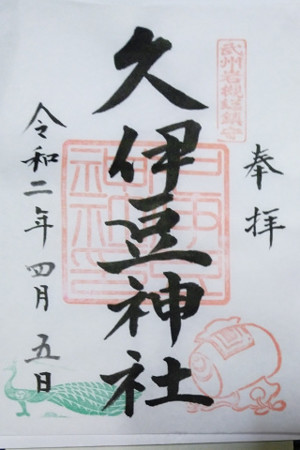 武州岩槻總鎮守
奉拝
久伊豆神社
令和二年四月五日